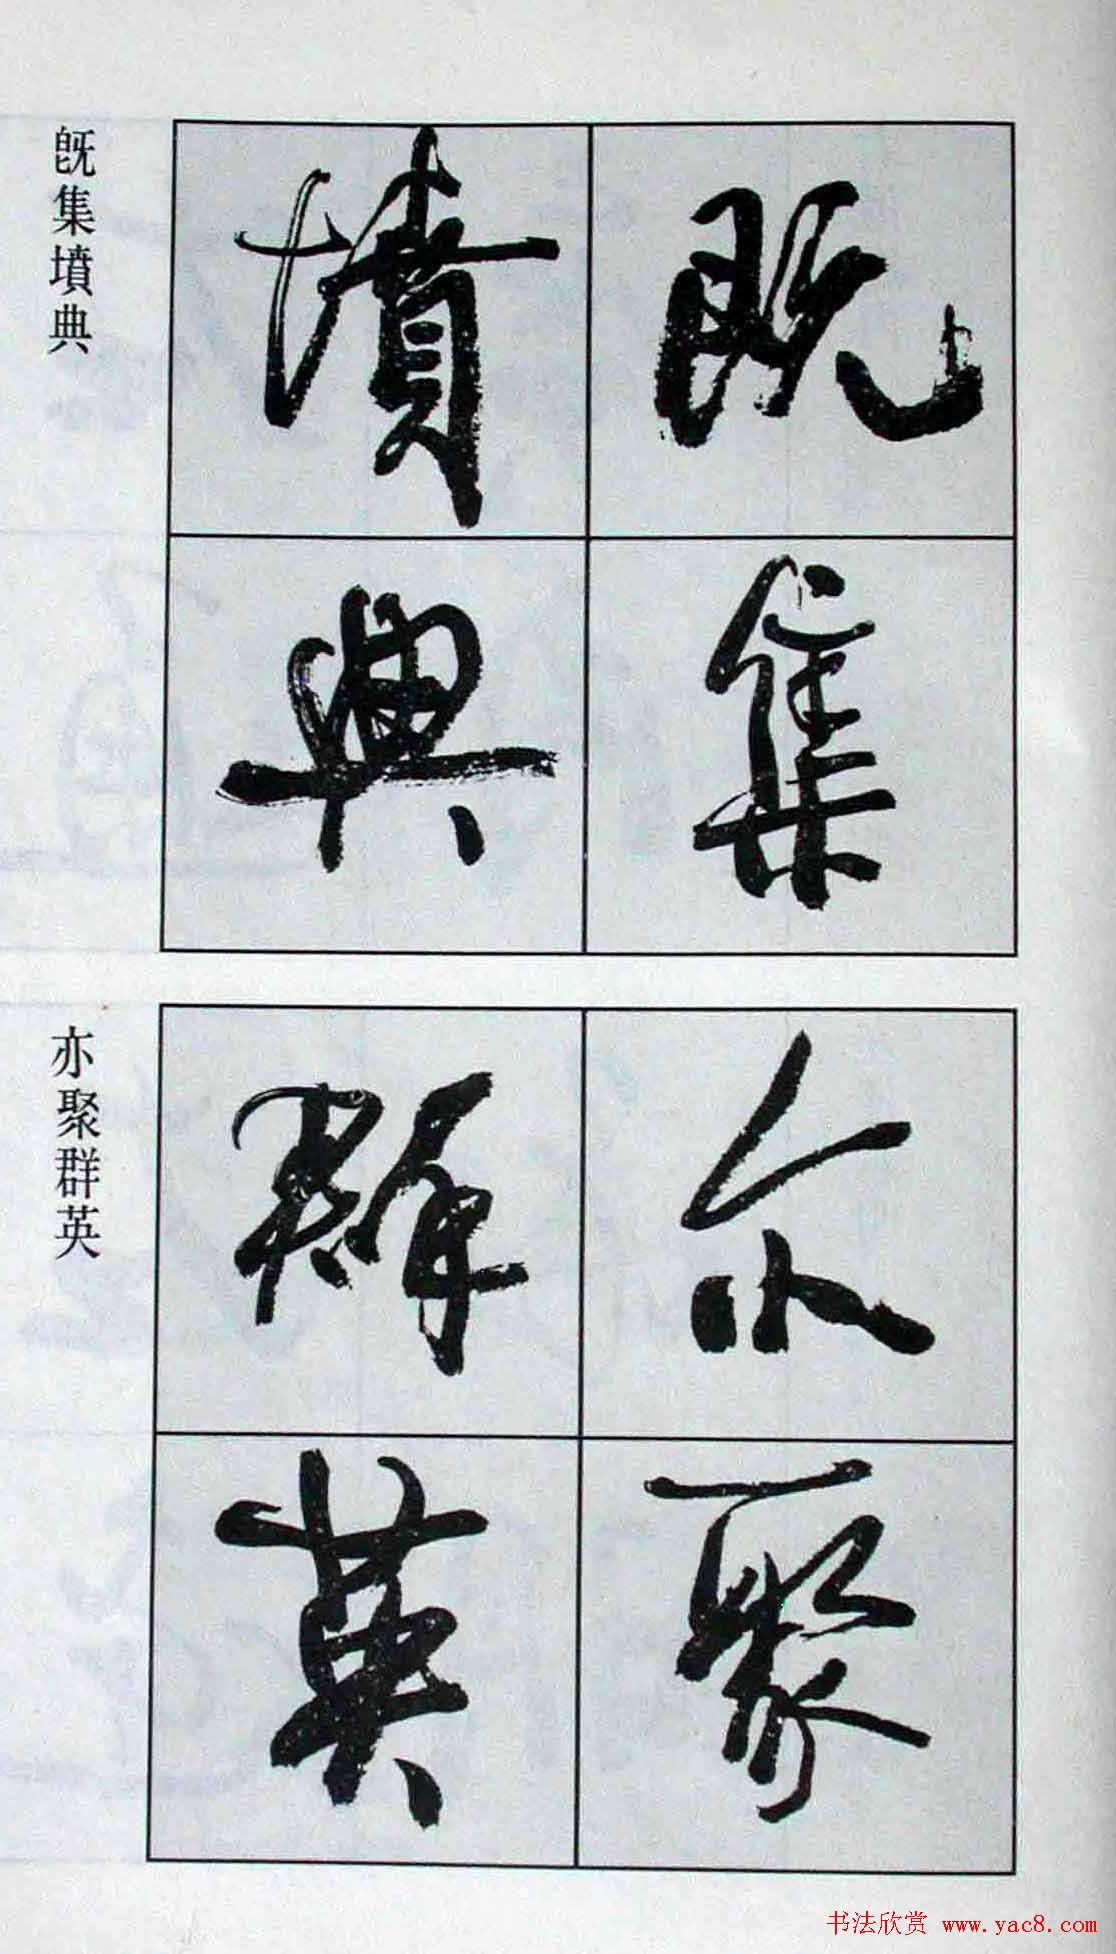 既集
墳典
既集墳典
亦聚
群英
亦聚群英
书法欣赏 www.yac8.com